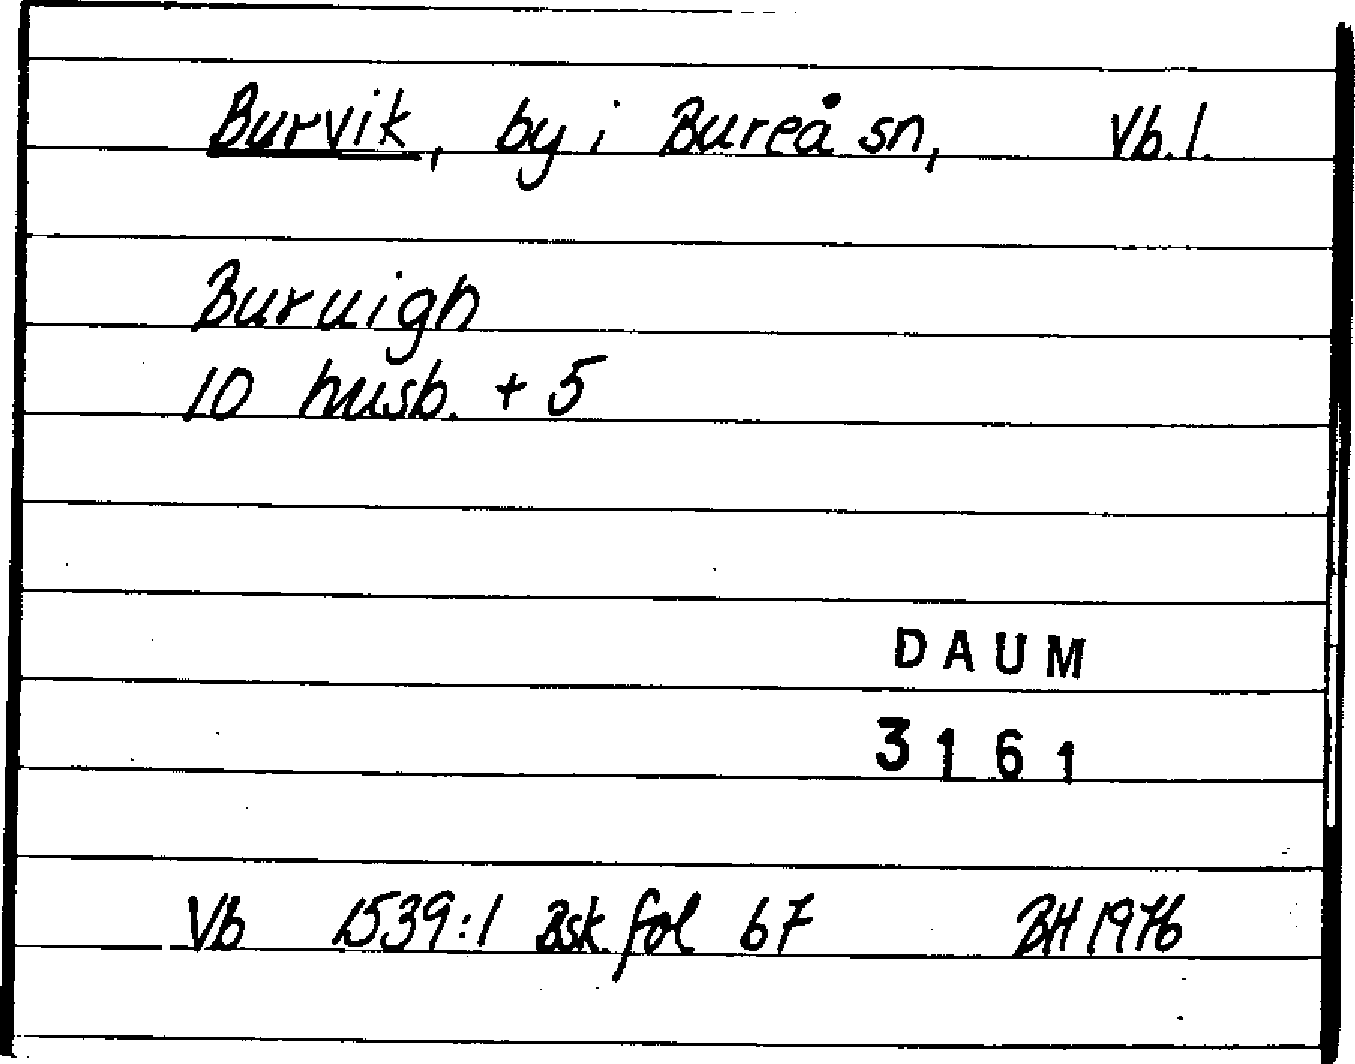 Burvik, by i Bureå sn, Vb. l.
Buruigh
10 husb. + 5
DAUM
3161
Vb 1539:1 Bsk fol 67 BH 1976